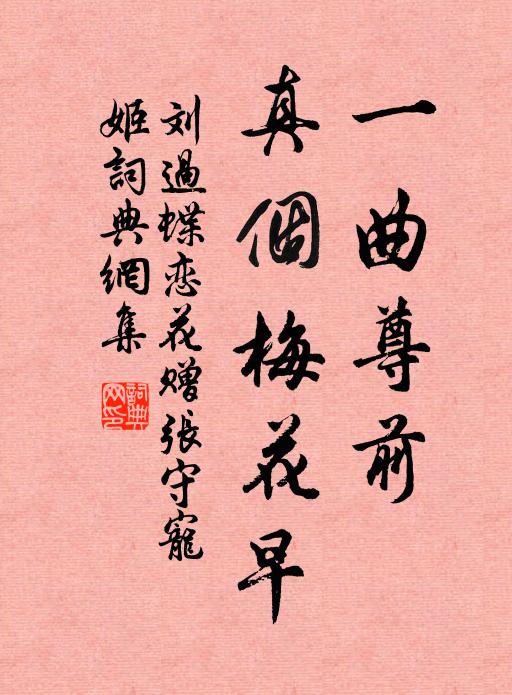 一曲尊前
真個梅花早
刘過蝶恋花赠張守寵
姬詞典網集
詞典网印